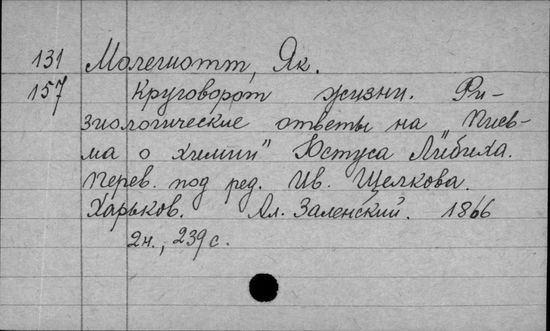 131 Молешотт, Як.
157 Круговорот жизни. Фи-
зиологические ответы на "Пись-
ма о химии" Юстуса Либиха.
Перев. под ред. Ив. Щелкова.
Харьков. Ал. Заленский. 1866
2н., 239 с.